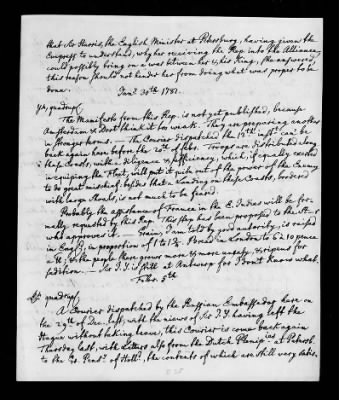 that Mr Harris, the English Minister at Petersburg, having given the
Empress to understand, why her receiving the Rep into the Alliance,
could possibly bring on a war between her & his King, she answered,
this reason should not hinder her from doing what was proper to be
done.
Jany 30th 1781.
The Manifesto from this Rep. is not yet published, because
Amsterdam & Dort think it too weak. They are preparing another
in stronger terms. — The Courier dispatched the 19th inst. can't be
back again here before the 20th of Feby. Troops are distributed along
these Coasts, with a diligence & sufficiency, which, if equally exerted
in equiping the Fleet, will put it quite out of the power of the Enemy
to do great mischief: besides that a Landing on these Coasts, bordered
with large shoals, is not much to be feared.
Probably the assistance of France in the E. Indies will be for-
mally requested by this Rep. This step has been proposed to the
and approved it. — Grain, I am told by good authority, is raised
in Engd, in proportion of 1 to 1½. Bread in London to 6 2 10 pence
& the people there grows more & more uneasy, & ripens for
sedition. — Sr J. Y. is still at Antwerp for I don't know what.
Feby. 5th
A Courier dispatched by the Russian Embassador here on
the 29th of Dec. last, with the news of Sr J. Y. having left the
Hague without taking leave, this Courier is come back again
Thursday last, with Letters also from the Dutch Plenip. at Petersb.
to the Gr. Pensy. of Holld., the contents of which are still very satis-